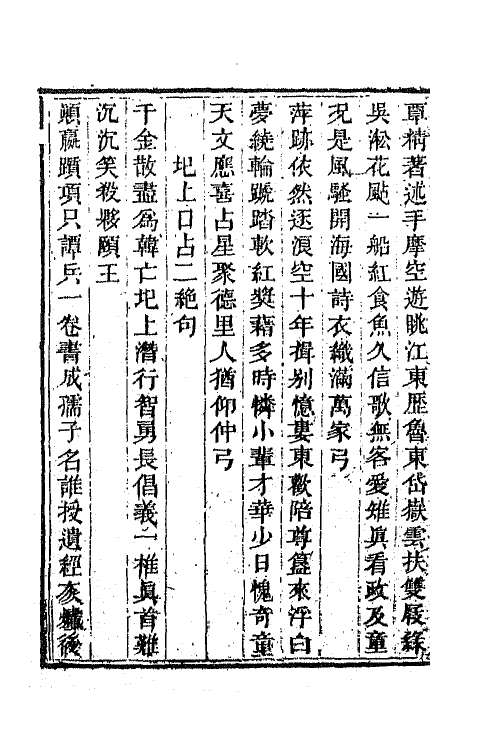 覃精著述手摩空遊眺江東歷魯東岱嶽雲扶雙屐綠
吳淞花颭一船紅食魚久信歌無客愛雉眞看政及童
况是風騷開海國詩衣織滿萬家弓
萍跡依然逐浪空十年揖别憶婁東歡陪尊簋來浮白
夢繞輪蹏踏軟紅獎藉多時憐小輩才華少日愧奇童
天文應喜占星聚德里人猶仰仲弓
圯上口占二絶句
千金散盡爲韓亡圯上潛行智勇長倡義一椎眞首難
沉沉笑殺夥頤王
顚嬴躓項只譚兵一卷書成孺子名誰授遺經亥
後